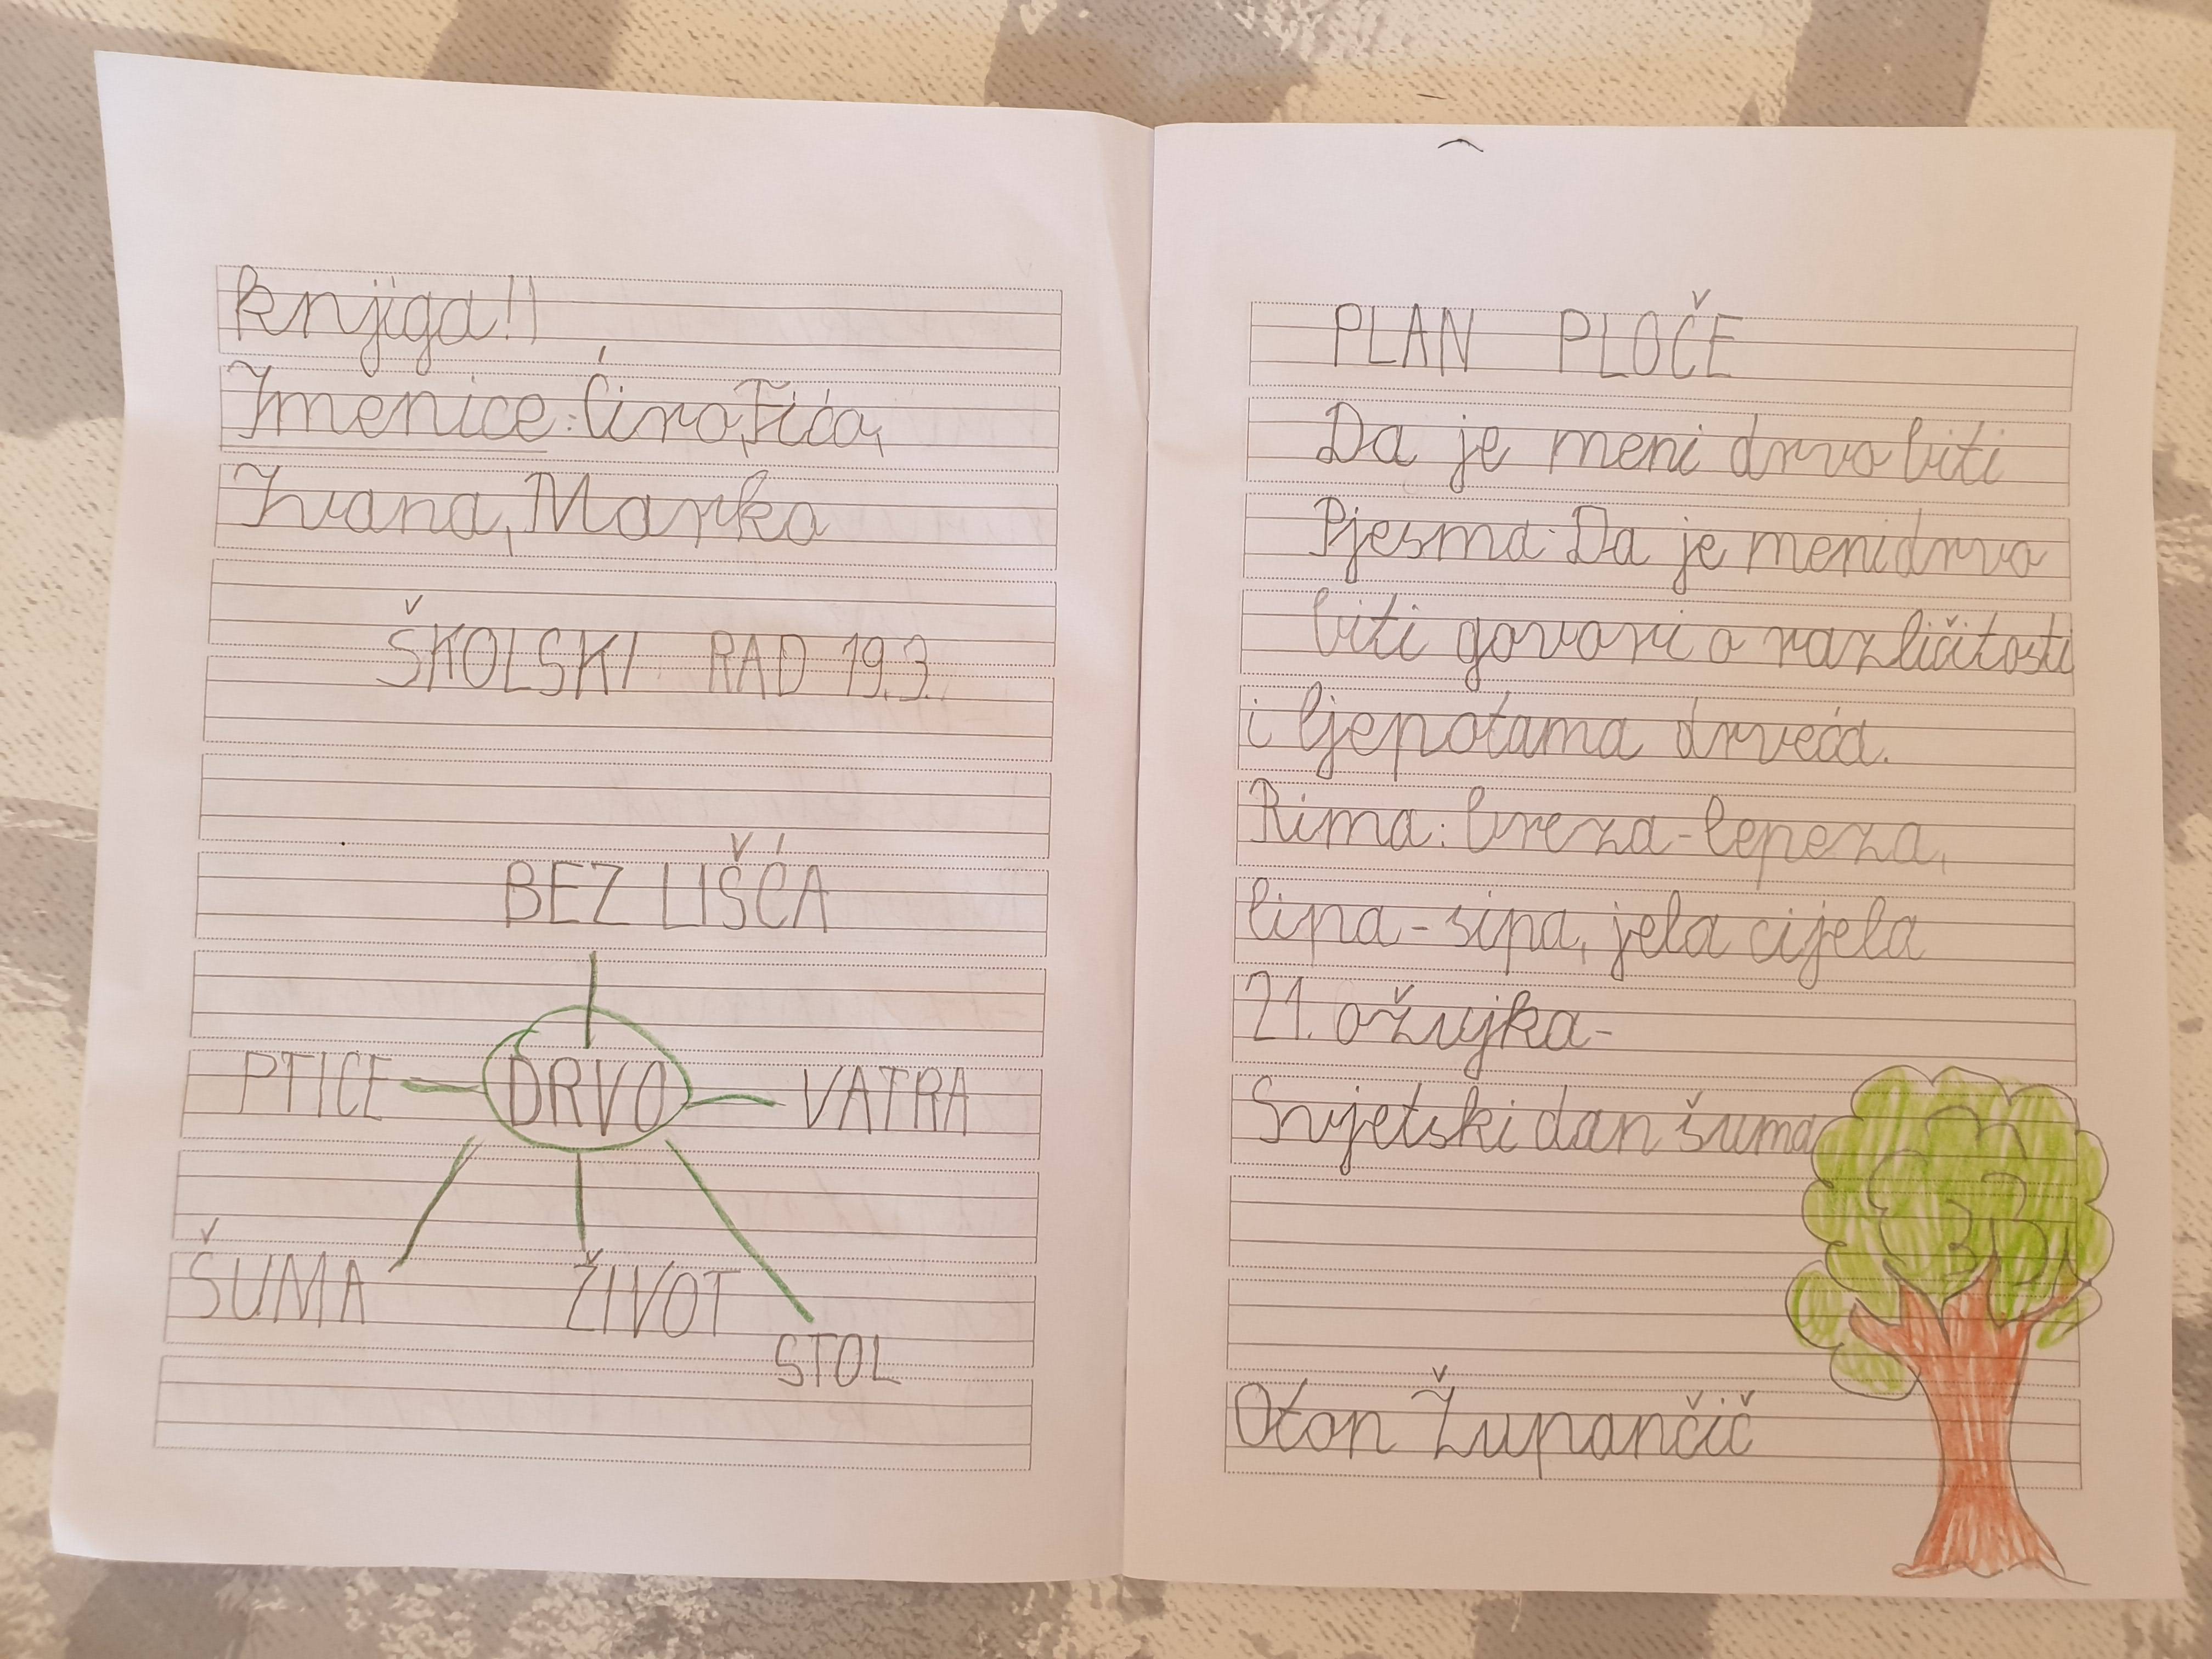 knjiga!)
Imenice: Ćiro, Fića,
Ivana, Marko
ŠKOLSKI RAD 19.3.
BEZ LIŠĆA
PTICE DRVO VATRA
ŠUMA ŽIVOT
STOL
PLAN PLOČE
Da je meni drvo biti
Pjesma: Da je meni drvo
biti govori o različitosti
i ljepotama drveća.
Rima: breza-lepeza,
lipa-sipa, jela cijela
21. ožujka-
Svjetski dan šuma
Oton Župančič